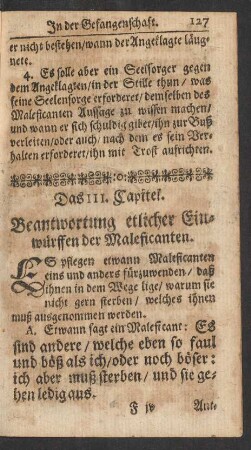 In der Gefangenschaft. 127
er nicht bestehen/ wann der Angeklagte läug-
nete.
4. Es solle aber ein Seelsorger gegen
dem Angeklagten/ in der Stille thun/ was
seine Seelensorge erforderet/ demselben des
Maleficanten Aussage zu wissen machen/
und wann er sich schuldig giber/ ihn zur Buß
verleiten/ oder auch/ nach dem es sein Ver-
halten erforderet/ ihn mit Trost aufrichten.
:o:
Das III. Capitel.
Beantwortung etlicher Ein-
würffen der Maleficanten.
ES pflegen etwann Maleficanten
eins und anders fürzuwenden/ daß
ihnen in dem Wege lige/ warum sie
nicht gern sterben/ welches ihnen
muß ausgenommen werden.
A. Etwann sagt ein Maleficant: Es
sind andere/ welche eben so faul
und böß als ich/ oder noch böser:
ich aber muß sterben/ und sie ge-
hen ledig aus.
F iv Ant-